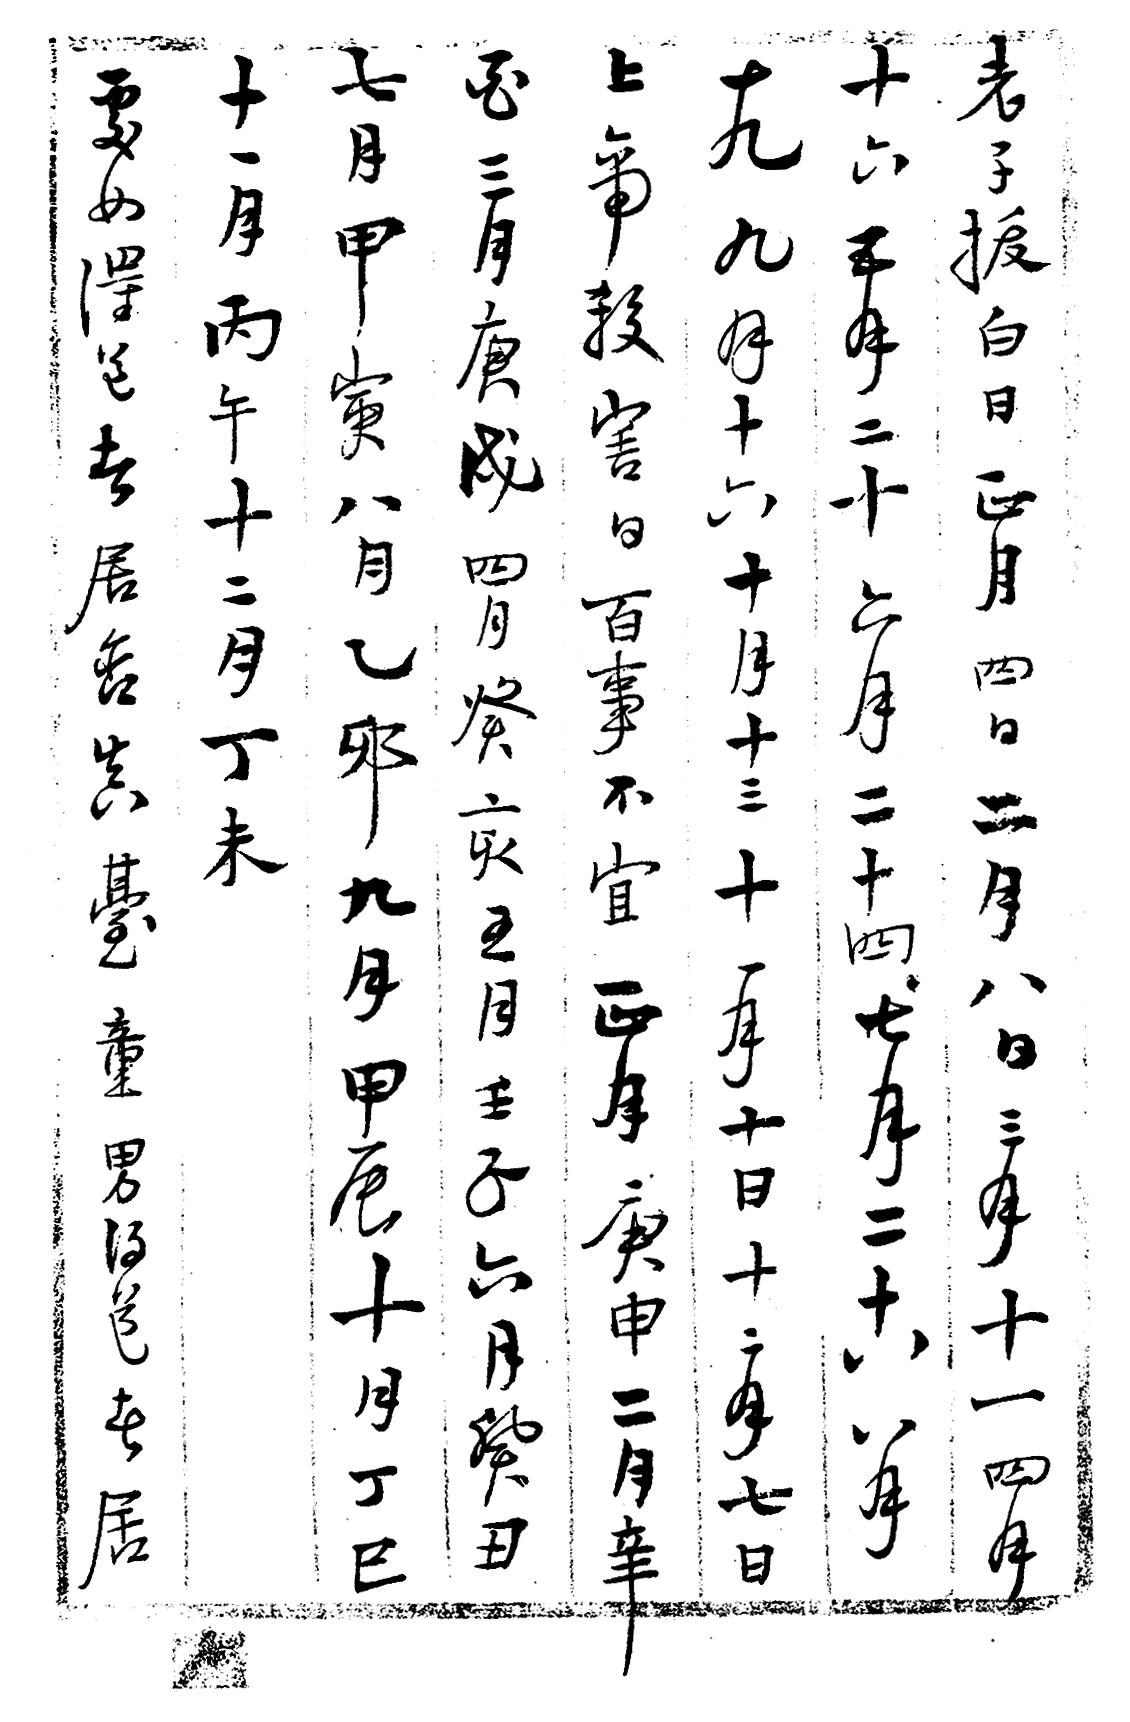 老子拔白日正月四日二月八日三月十一四月
十六五月二十六月二十四七月二十六八月
十九九月十六十月十三十一月十日十二月七日
上帝殺害日百事不宜正月庚申二月辛
酉三月庚戌四月癸亥五月壬子六月癸丑
七月甲寅八月乙卯九月甲辰十月丁巳
十一月丙午十二月丁未
處女得道者居含真臺童男得道者居